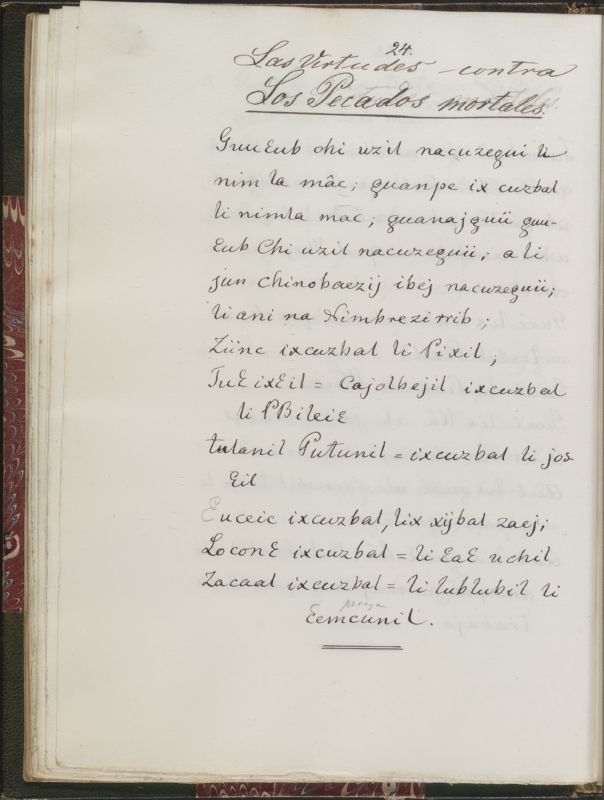 24.
Las Virtudes contra
Los Pecados mortales.
Guu Ɛub chi uzil nacuzegui li
nim la mâc; guanpe ix cuzbal
li nimla mac; guanajguii guu-
Ɛub Chi uzil nacuzeguii; a li
jun chinobaezij ibej nacuzeguii;
li ani na Nimbrezirrib;
Ziinc ixcuzbal li Pixil;
TuƐ ixƐil = Cajolbejil ixcuzbal
li PBileiƐ
tulanil Putunil = ixcuzbal li jos
Ɛil
Ɛuceic ixcuzbal, lix xijbal zaej;
LoconƐ ixcuzbal = li ƐaƐ uchil
Zacaal ixcuzbal = li lublubil li
pereza
Ɛemcunil.